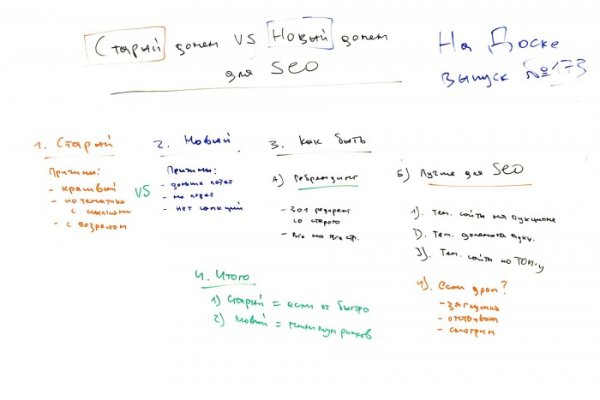 Старый домен VS Новый домен
для SEO
На Доске
выпуск №173
1. Старый
Причины:
- красивый
- по тематике
с ссылками
- с возрастом
VS
2. Новый
Причины:
- дольше
- нет санкций
3. Как быть
А) Ребрендинг
- 301 редирект
со старого
- Все на все стр.
Б) Лучше для SEO
1). Тем. сайты на аукционе
2). Тем. домены
3). Тем. сайты по ТОП-у
4). Если дроп?
- заглушка
- смотрим
4. Итого
1) Старый = если оч быстро
2) Новый = минимум рисков